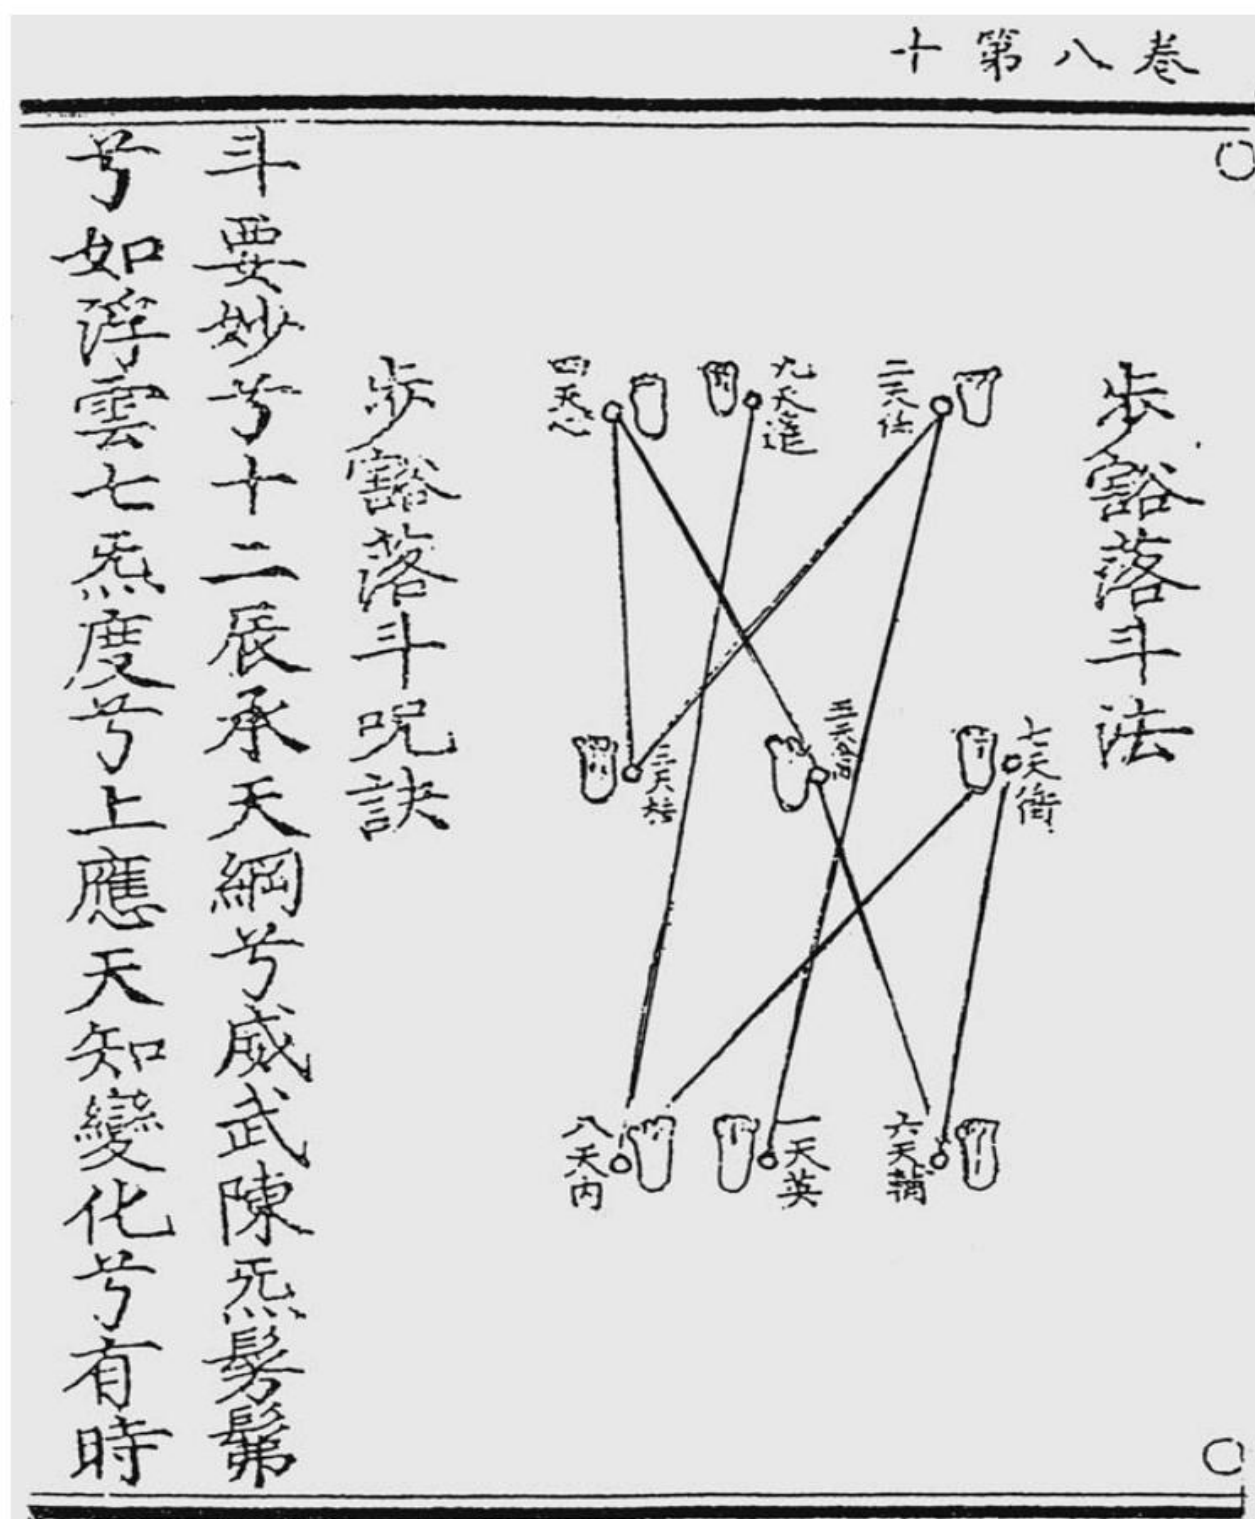 卷八第十
歩豁落斗法
二天任
九天蓬
四天心
七天衝
五天禽
三天柱
六天輔
一天英
八天内
歩豁落斗呪訣
斗要妙兮十二辰承天綱兮威武陳炁髣髴
兮如浮雲七炁度兮上應天知變化兮有時